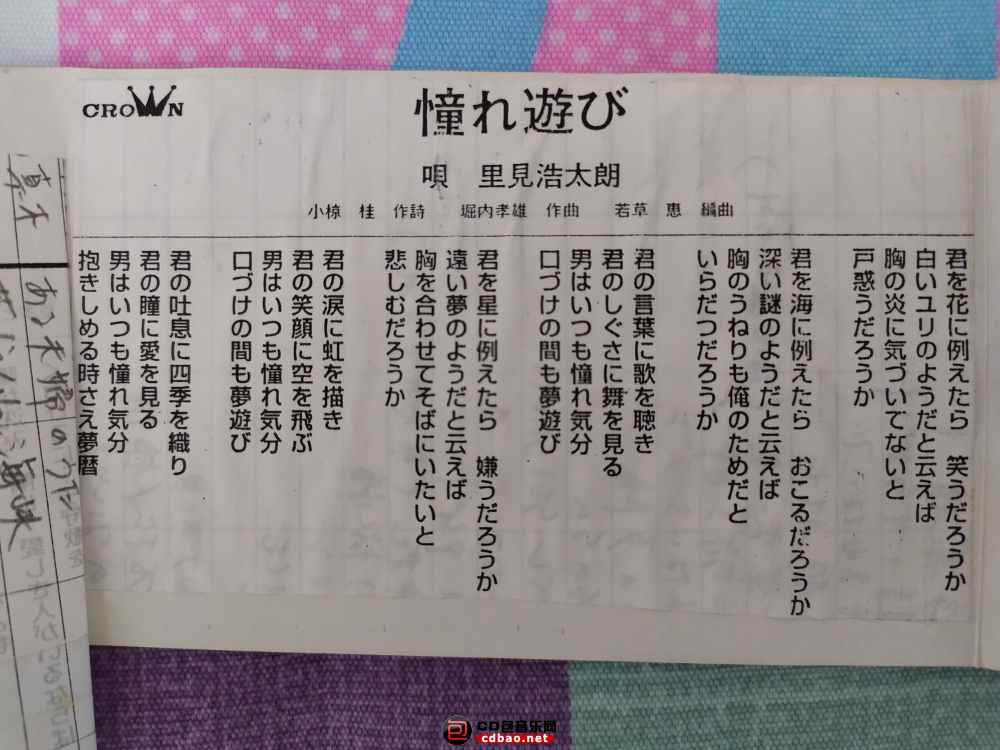 CROWN
憧れ遊び
唄　里見浩太朗
小椋　桂　作詩　堀内孝雄　作曲　若草　恵　編曲
君を花に例えたら　笑うだろうか
白いユリのようだと云えば
胸の炎に気づいてないと
戸惑うだろうか
君を海に例えたら　おこるだろうか
深い謎のようだと云えば
胸のうねりも俺のためだと
いらだつだろうか
君の言葉に歌を聴き
君のしぐさに舞を見る
男はいつも憧れ気分
口づけの間も夢遊び
君を星に例えたら　嫌うだろうか
遠い夢のようだと云えば
胸を合わせてそばにいたいと
悲しむだろうか
君の涙に虹を描き
君の笑顔に空を飛ぶ
男はいつも憧れ気分
口づけの間も夢遊び
君の吐息に四季を織り
君の瞳に愛を見る
男はいつも憧れ気分
抱きしめる時さえ夢暦
CD包音乐网
cdbao.net